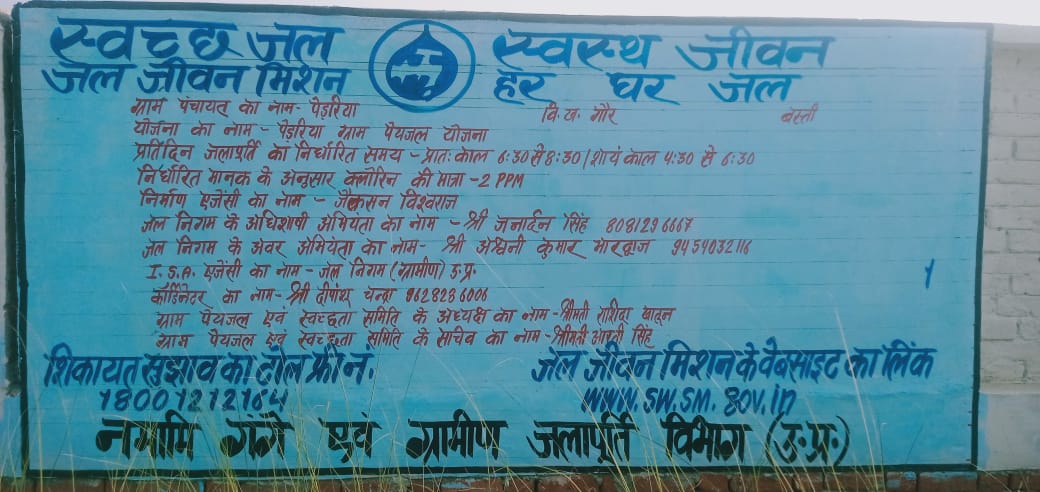 स्वच्छ जल स्वस्थ जीवन
जल जीवन मिशन हर घर जल
ग्राम पंचायत का नाम- पेड़रिया वि.ख. गौर बस्ती
योजना का नाम - पेड़रिया ग्राम पेयजल योजना
प्रतिदिन जलापूर्ति का निर्धारित समय - प्रातः काल 6:30 से 8:30 / शायं काल 4:30 से 6:30
निर्धारित मानक के अनुसार क्लोरिन की मात्रा - 2 PPM
निर्माण एजेंसी का नाम - जैक्सन विश्वराज
जल निगम के अधिशाषी अभियंता का नाम - श्री जनार्दन सिंह 8081296667
जल निगम के अवर अभियंता का नाम- श्री अश्वनी कुमार भारद्वाज 9454032116
I.S.A. एजेंसी का नाम - जल निगम (ग्रामीण) उ.प्र.
कॉर्डिनेटर का नाम- श्री चन्द्रा 9628286006
ग्राम पेयजल एवं स्वच्छता समिति के अध्यक्ष का नाम - श्रीमती राशिदा खातून
ग्राम पेयजल एवं स्वच्छता समिति के सचिव का नाम - श्रीमती आरती सिंह
शिकायत सुझाव का टोल फ्री नं. जल जीवन मिशन के वेबसाइट का लिंक
18001212164 WWW.SWSM.GOV.in
नमामि गंगे एवं ग्रामीण जलापूर्ति विभाग (उ.प्र.)